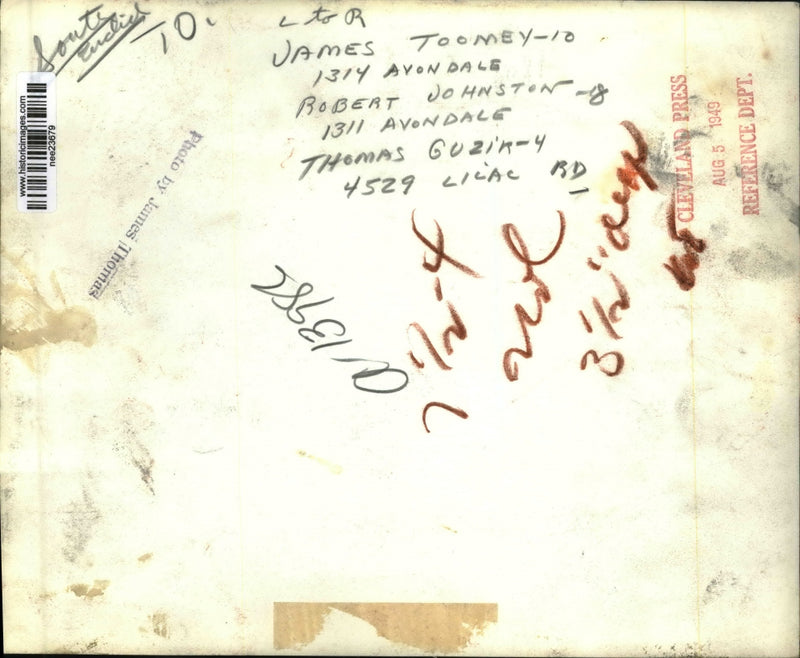 South
Euclid
10.
L to R
JAMES TOOMEY-10
1314 AVONDALE
ROBERT JOHNSTON-8
1311 AVONDALE
THOMAS GUZIK-4
4529 LILAC RD
www.historicimages.com
nee23679
Photo by James Thomas
CLEVELAND PRESS
AUG 5 1949
REFERENCE DEPT.
7 1/2-4
2 col
3 1/2" deep